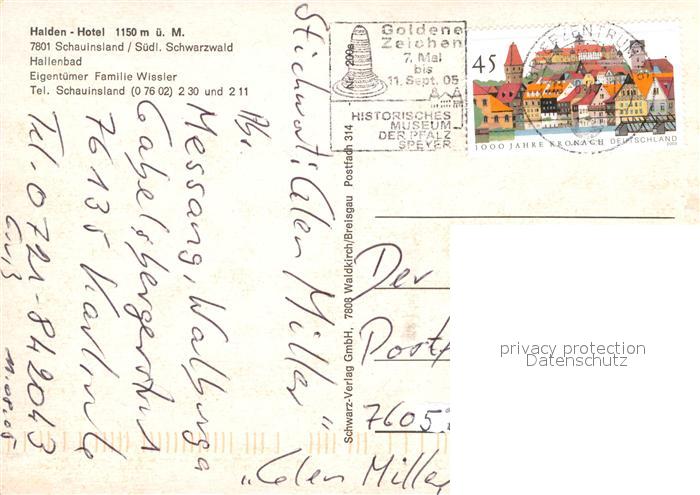 Halden - Hotel 1150 m ü. M.
7801 Schauinsland / Südl. Schwarzwald
Hallenbad
Eigentümer Familie Wissler
Tel. Schauinsland (0 76 02) 2 30 und 2 11
Goldene
Zeichen
7. Mai
bis
11. Sept. 05
HISTORISCHES
MUSEUM
DER PFALZ
SPEYER
45
1000 JAHRE KRONACH DEUTSCHLAND
Schwarz-Verlag GmbH, 7808 Waldkirch/Breisgau Postfach 314
Stichwort: Glen Miller"
Abs.
Messang, Walburga
Gabelsbergerstr. 1
76135 Karlsruhe
Tel. 0721-842043
Der
Postf
7605
"Glen Miller
privacy protection
Datenschutz